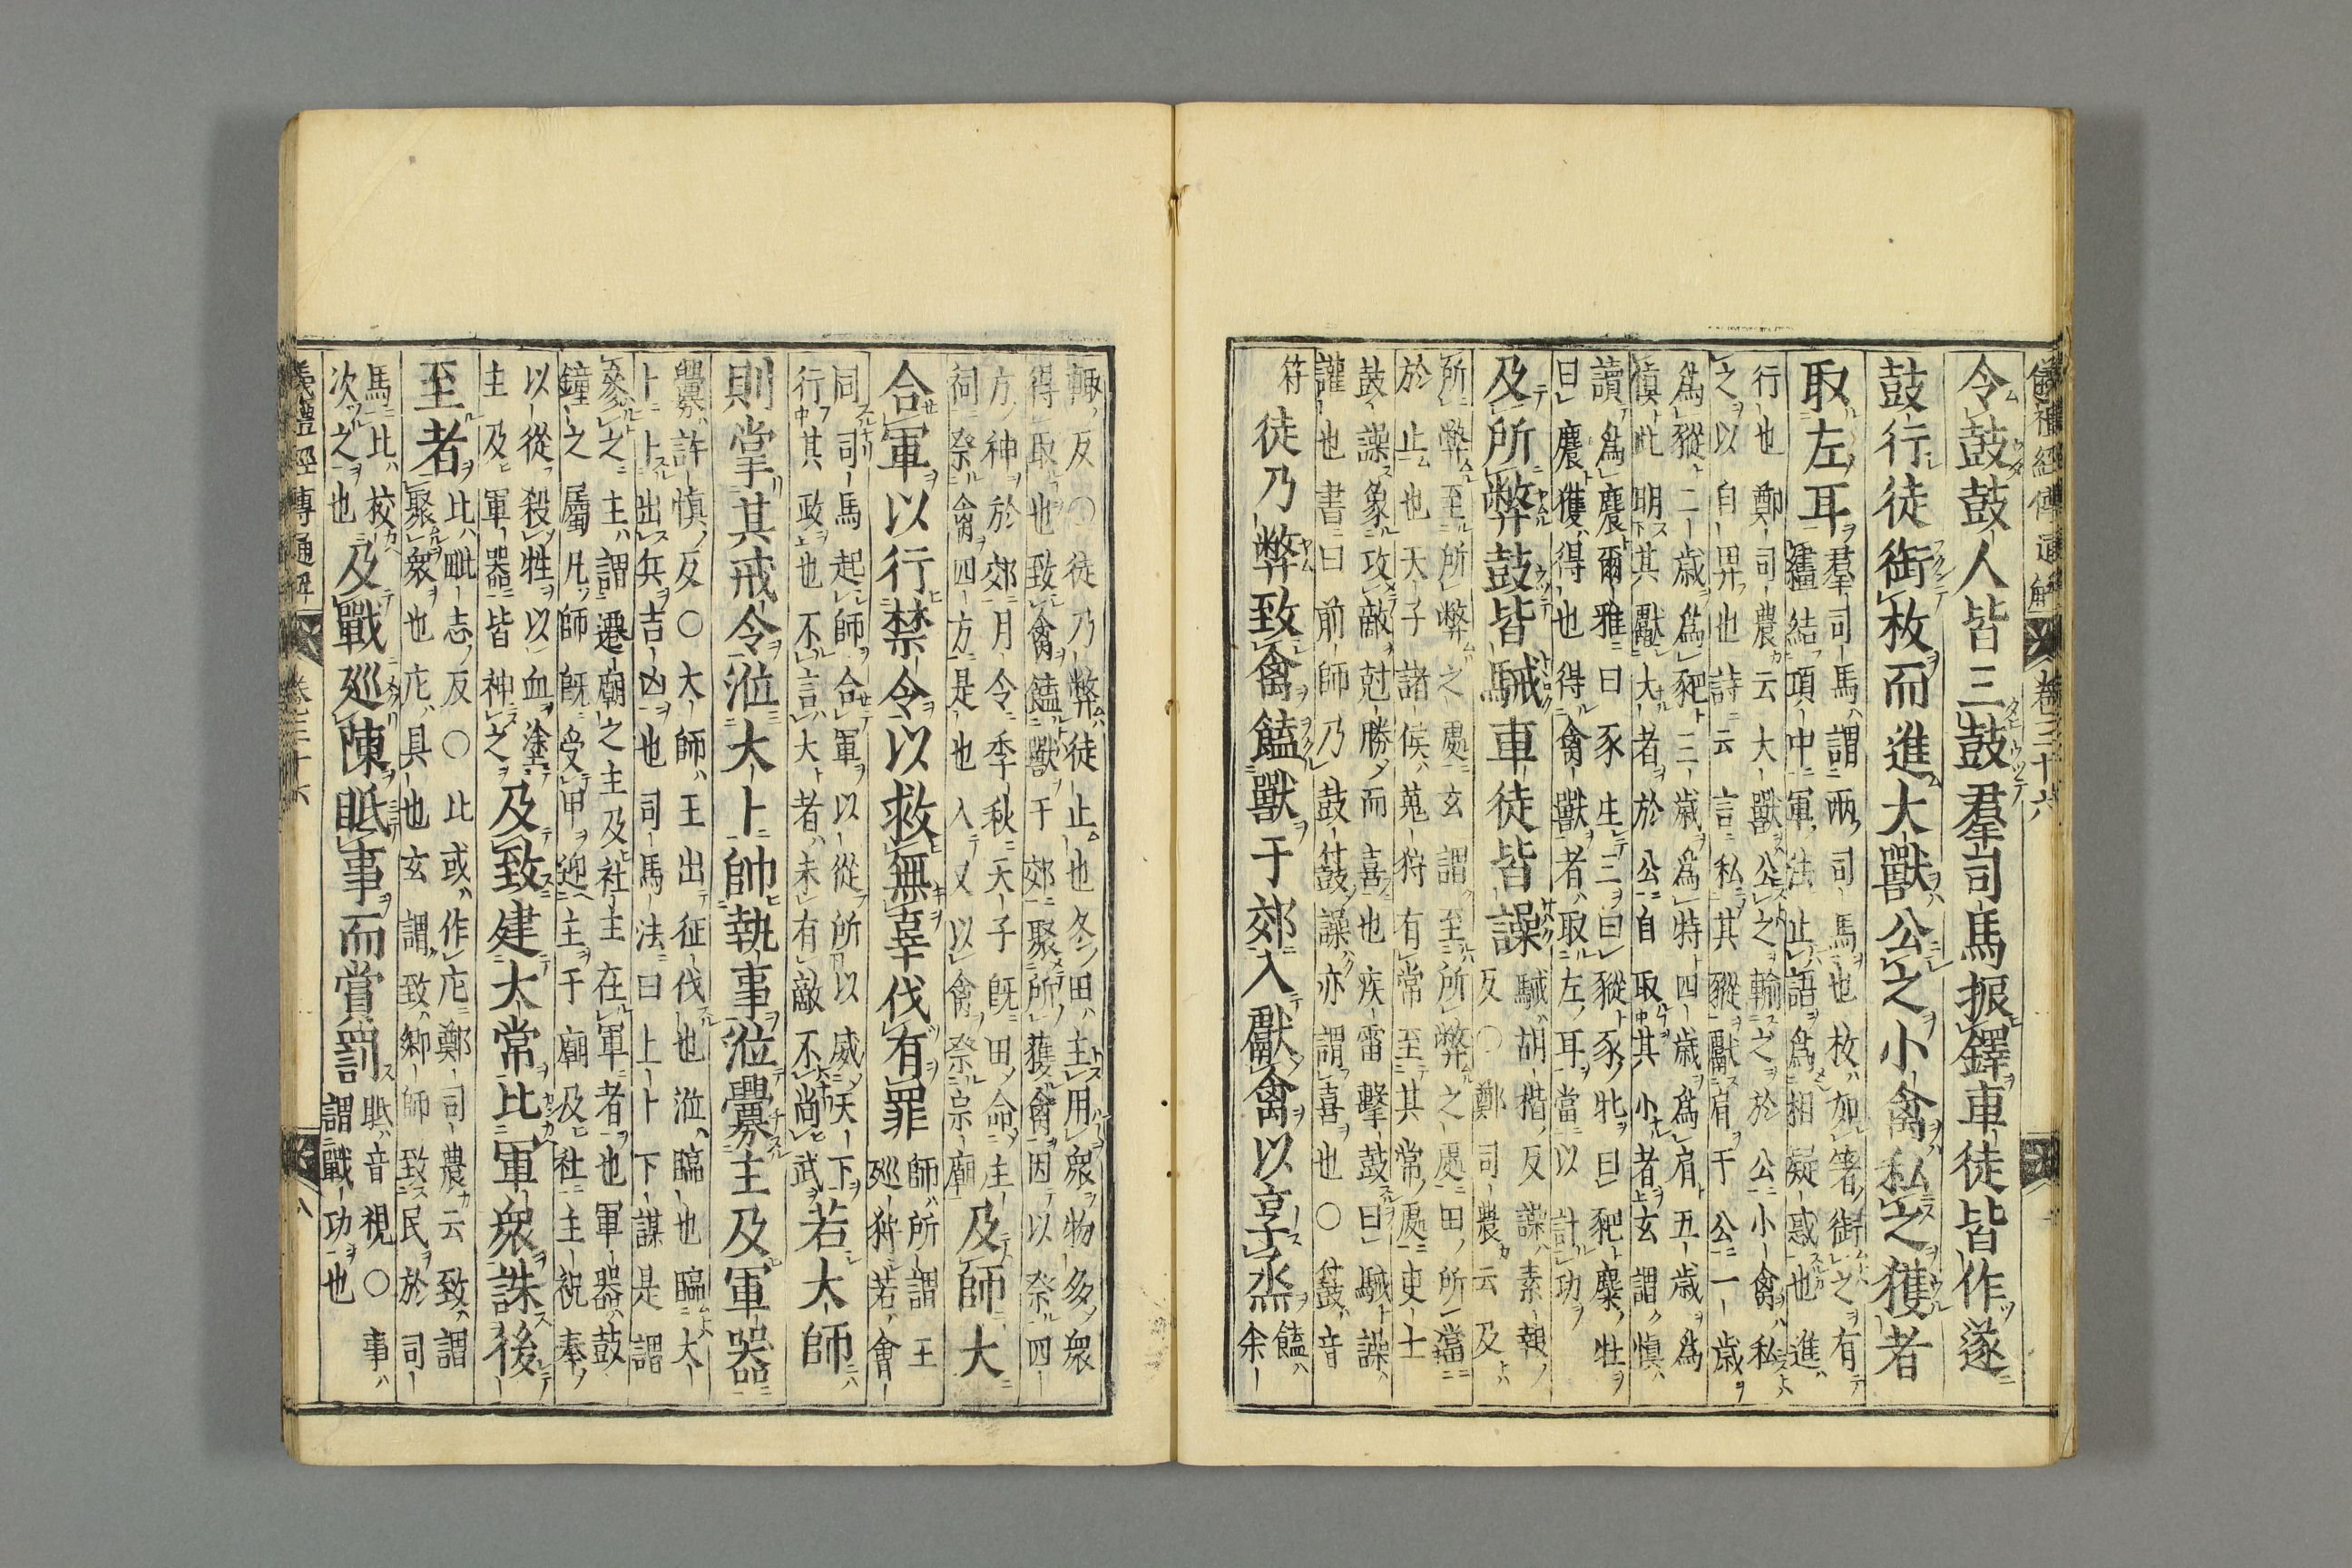 儀禮經傳通解 卷三十六
令鼓鼓人皆三鼓羣司馬振鐸車徒皆作遂
鼓行徒銜枚而進大獸公之小禽私之獲者
取左耳 羣司馬謂兩司馬也枚如箸銜之有
繣結項中軍法止語爲相疑惑也進
行也鄭司農云大獸公之輸之於公小禽私
之以自畀也詩云言私其豵獻肩于公一歲
爲豵二歲爲豝三歲爲特四歲爲肩五歲爲
愼此明其獻大者於公自取其小者玄謂愼
讀爲麎爾雅曰豕生三曰豵豕牝曰豝麋牡
曰麎獲得也得禽獸者取左耳當以計功
及所弊鼓皆駴車徒皆譟 駴胡楷反譟素報
反○鄭司農云及
所弊至所弊之處玄謂至所弊之處田所當
於止也天子諸侯蒐狩有常至其常處吏士
鼓譟象攻敵剋勝而喜也疾雷擊鼓曰駴譟
讙也書曰前師乃鼓𡔷譟亦謂喜也○𡔷音
符 徒乃弊致禽饁獸于郊入獻禽以享烝 饁
余
輒反○徒乃弊徒止也冬田主用衆物多衆
得取也致禽饁獸于郊聚所獲禽因以祭四
方神於郊月令季秋天子既田命主
祠祭禽四方是也入又以禽祭宗廟 及師大
合軍以行禁令以救無辜伐有罪 師所謂王
巡狩若會
同司馬起師合軍以從所以威天下
行其政也不言大者未有敵不尚武 若大師
則掌其戒令涖大卜帥執事涖釁主及軍器
釁許慎反○大師王出征伐也涖臨也臨大
卜卜出兵吉凶也司馬法曰上卜下謀是謂
參之主謂遷廟之主及社主在軍者也軍器鼓
鐘之屬凡師既受甲迎主于廟及社主祝奉
以從殺牲以血塗
主及軍器皆神之 及致建大常比軍衆誅後
至者 比毗志反○比或作庀鄭司農云致謂
聚衆也庀具也玄謂致鄉師致民於司
馬比校
次之也 及戰巡陳眡事而賞罰 眡音視○事
謂戰功也
儀禮經傳通解 卷三十六 八